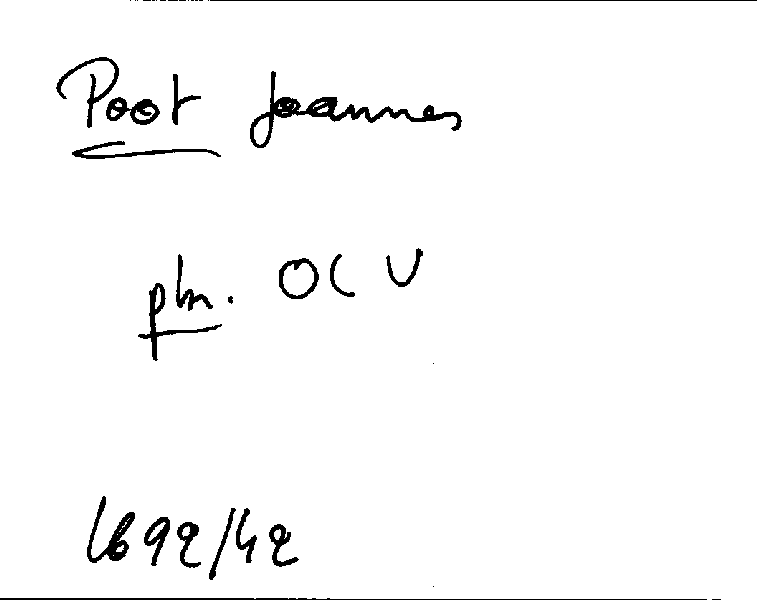 Poot Joannes
phr. OCV
1692/42